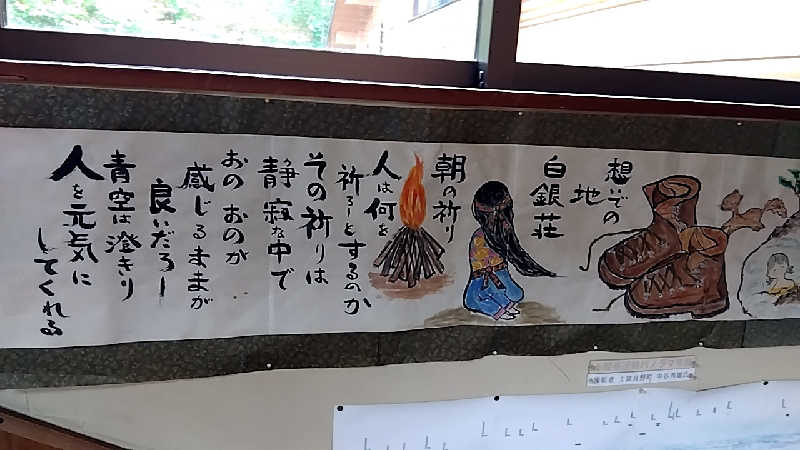 想いその
地
白銀荘
朝の祈り
人は何を
祈ろーとするのか
その祈りは
静寂な中で
おのおのが
感じるままが
良いだろー
青空は澄きり
人を元気に
してくれる